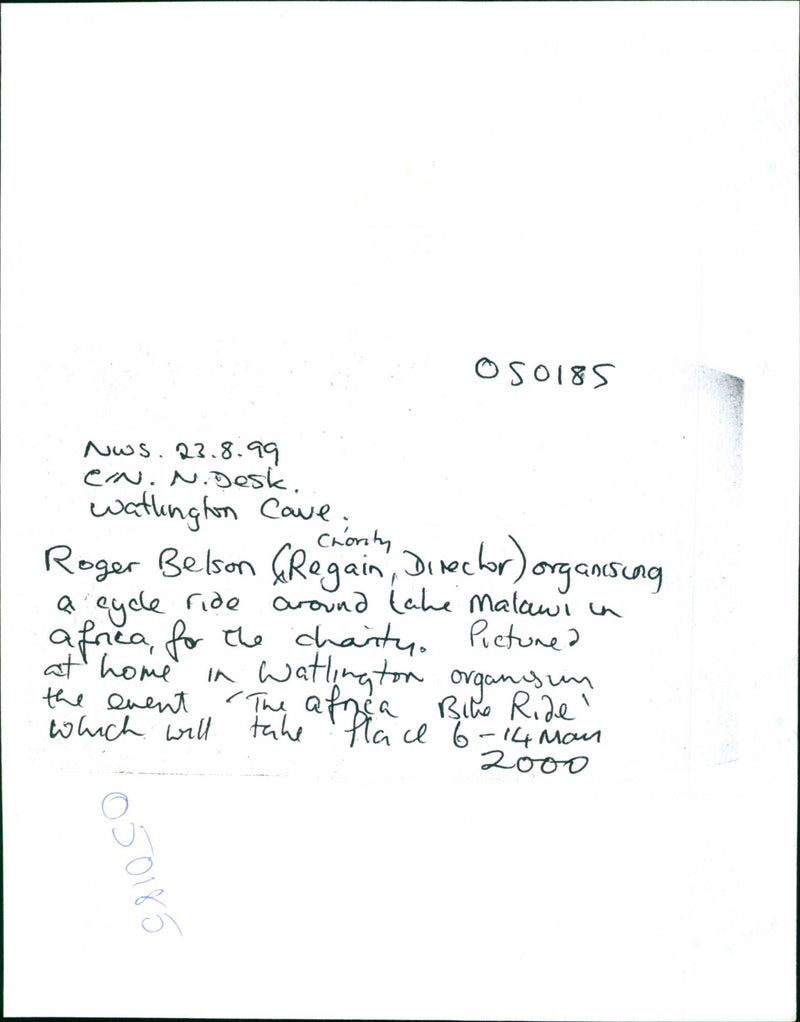 050185
NWS. 23.8.99
C/N. N. Desk.
Watlington Cave.
Charity
Roger Belson (Regain, Director) organising
a cycle ride around Lake Malawi in
africa, for the charity. Pictured
at home in Watlington organisin
the event 'The africa Bike Ride'
which will take place 6-14 Man
2000
050185